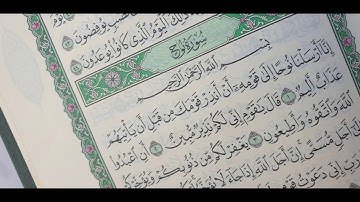 نُصُبٍ يُوفِضُونَ ٤٣
ذَٰلِكَ ٱلۡيَوۡمُ ٱلَّذِي كَانُواْ يُوعَدُونَ ٤٤
سُورَةُ نُوحٍ
بِسۡمِ ٱللَّهِ ٱلرَّحۡمَٰنِ ٱلرَّحِيمِ
إِنَّآ أَرۡسَلۡنَا نُوحًا إِلَىٰ قَوۡمِهِۦٓ أَنۡ أَنذِرۡ قَوۡمَكَ مِن قَبۡلِ أَن يَأۡتِيَهُمۡ
عَذَابٌ أَلِيمٞ ١ قَالَ يَٰقَوۡمِ إِنِّي لَكُمۡ نَذِيرٞ مُّبِينٌ ٢ أَنِ ٱعۡبُدُواْ
ٱللَّهَ وَٱتَّقُوهُ وَأَطِيعُونِ ٣ يَغۡفِرۡ لَكُم مِّن ذُنُوبِكُمۡ وَيُؤَخِّرۡكُمۡ
أَجَلٖ مُّسَمًّىۚ إِنَّ أَجَلَ ٱللَّهِ إِذَا جَآءَ لَا
رَبِّ إِنِّي دَعَوۡتُ